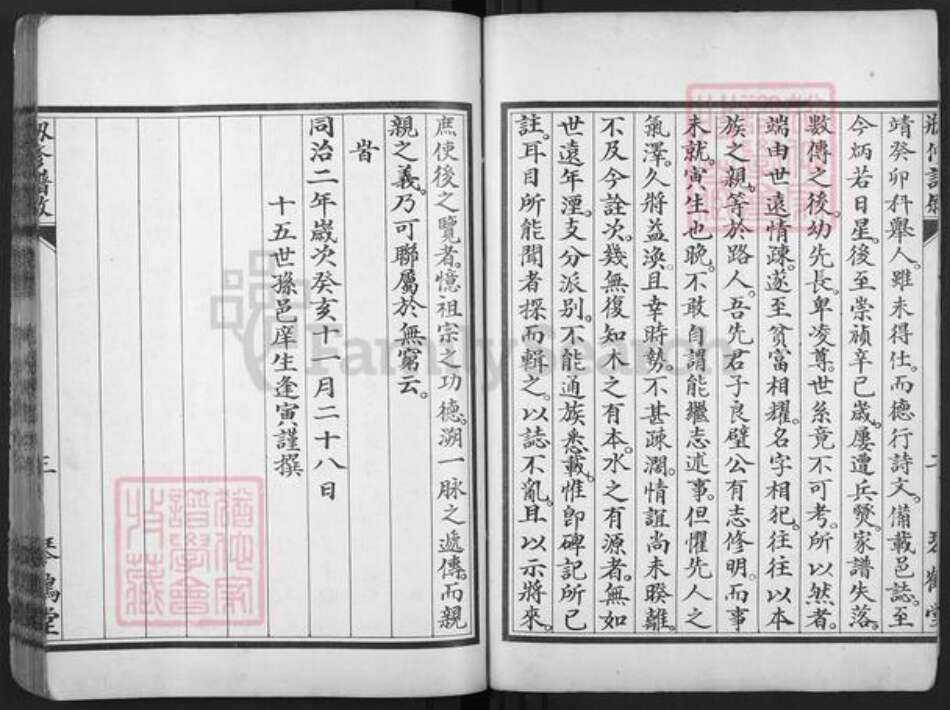 靖癸卯科舉人。雖未得仕。而德行詩文。備載邑誌。至
今炳若日星。後至崇禎辛巳歲。屢遭兵燹。家譜失落。
數傳之後。幼先長。卑凌尊。世系竟不可考。所以然者。
端由世遠情疎。遂至貧富相耀。名字相犯。往往以本
族之親。等於路人。吾先君子良璧公有志修明。而事
未就。寅生也晚。不敢自謂能繼志述事。但懼先人之
氣澤。久將益渙。且幸時勢。不甚疎濶。情誼尚未睽離。
不及今詮次。幾無復知木之有本。水之有源者。無如
世遠年湮。支分派别。不能通族悉載。惟卽碑記所已
註。耳目所能聞者。探而輯之。以誌不亂。且以示將來。
庶使後之覽者。憶祖宗之功德。溯一脉之遞傳。而親
親之義。乃可聯屬於無窮云。
旹
同治二年歲次癸亥十一月二十八日
十五世孫邑庠生逢寅謹撰
三
琴鶴堂
FamilySearch